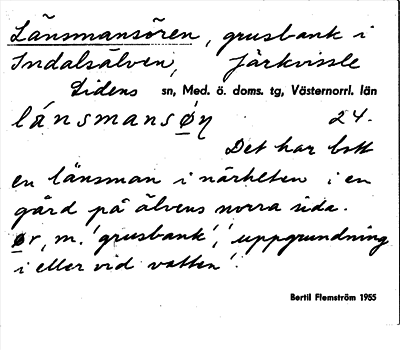 Länsmansören, grusbank i
Indalsälven, Järkvissle
Lidens sn, Med. ö. doms. tg, Västernorrl. län
lánsmansøn 24.
Det har bott
en länsman i närheten i en
gård på älvens norra sida.
ør, m. 'grusbank', 'uppgrundning
i eller vid vatten'.
Bertil Flemström 1955